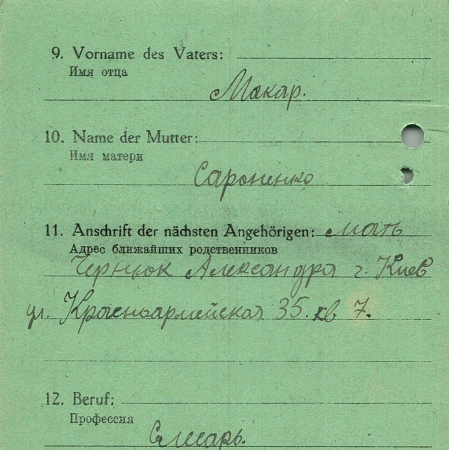 9. Vorname des Vaters:
Имя отца
Макар.
10. Name der Mutter:
Имя матери
Сароненко
11. Anschrift der nächsten Angehörigen: мать
Адрес ближайших родственников
Чернюк Александра г. Киев
ул. Красноармейская 35. кв 7.
12. Beruf:
Профессия
Слесарь.